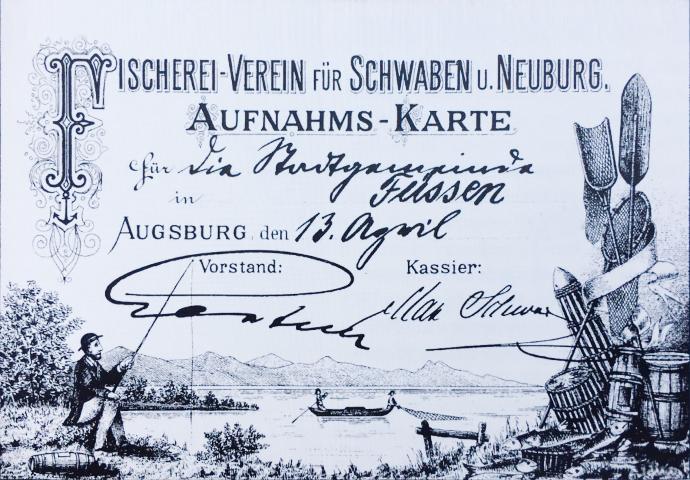 FISCHEREI-VEREIN FÜR SCHWABEN U. NEUBURG.
AUFNAHMS-KARTE
für die Stadtgemeinde
in Füssen
AUGSBURG, den 13. April
Vorstand: Kassier:
Max